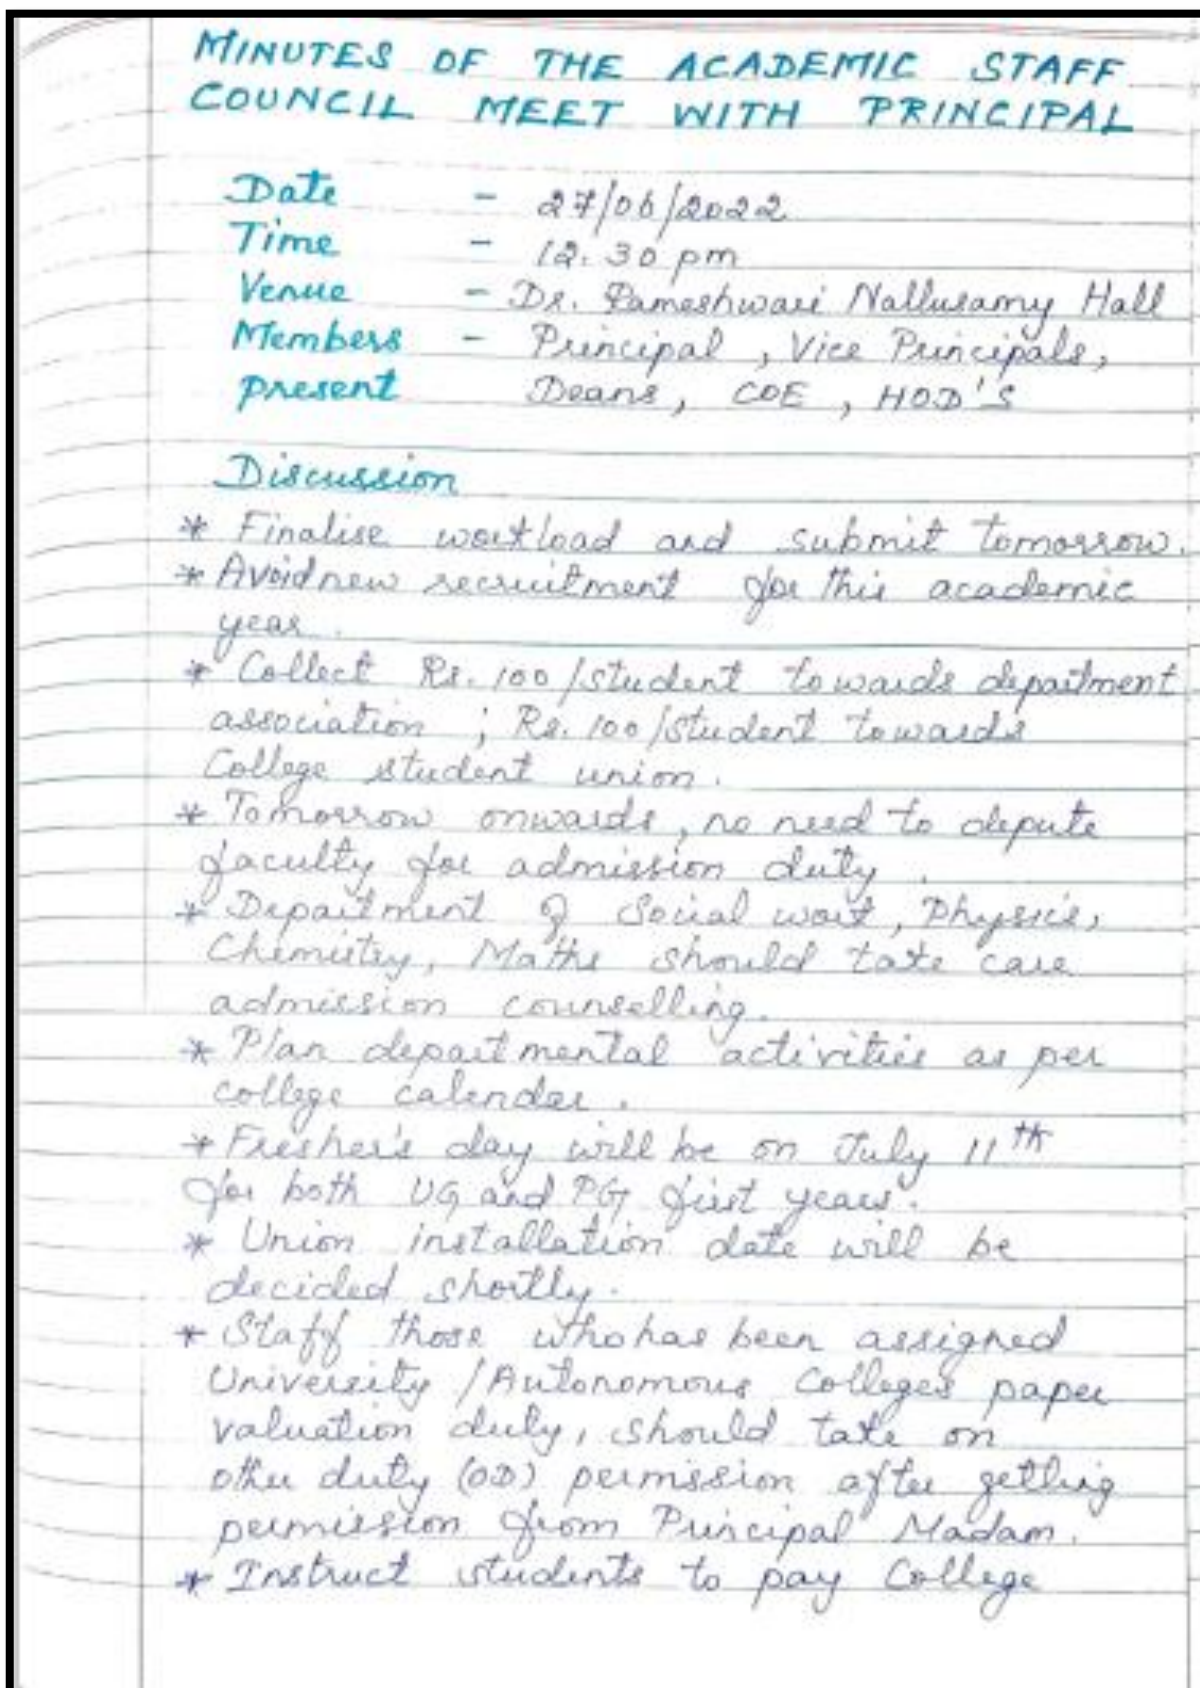 MINUTES OF THE ACADEMIC STAFF
COUNCIL MEET WITH PRINCIPAL
Date - 27/06/2022
Time - 12.30 pm
Venue - Dr. Rameshwari Nallusamy Hall
Members - Principal, Vice Principals,
present Deans, COE, HOD'S
Discussion
* Finalise workload and submit tomorrow.
* Avoid new recruitment for this academic
year.
* Collect Rs. 100/student towards department
association ; Rs. 100/student towards
College student union.
* Tomorrow onwards, no need to depute
faculty for admission duty.
* Department of Social work, Physics,
Chemistry, Maths should take care
admission counselling.
* Plan departmental activities as per
college calender.
* Fresher's day will be on July 11th
for both UG and PG first years.
* Union installation date will be
decided shortly.
* Staff those who has been assigned
University /Autonomous Colleges paper
valuation duty, should take on
other duty (OD) permission after getting
permission from Principal Madam.
* Instruct students to pay College